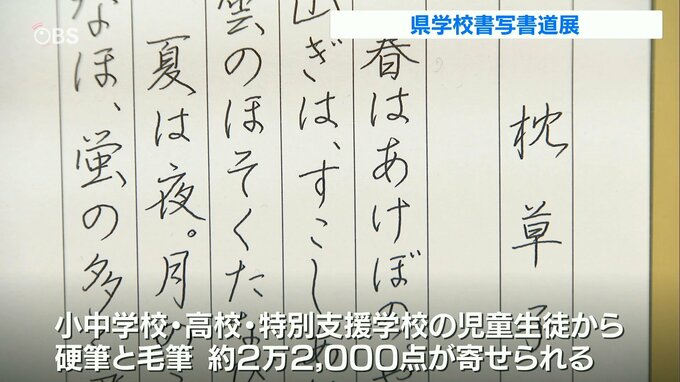 OBS
県学校書写書道展
枕草子
春はあけぼの
山ぎは、すこしあ
雲のほそくたな
夏は夜。月
なほ、蛍の多
小中学校・高校・特別支援学校の児童生徒から
硬筆と毛筆 約2万2,000点が寄せられる